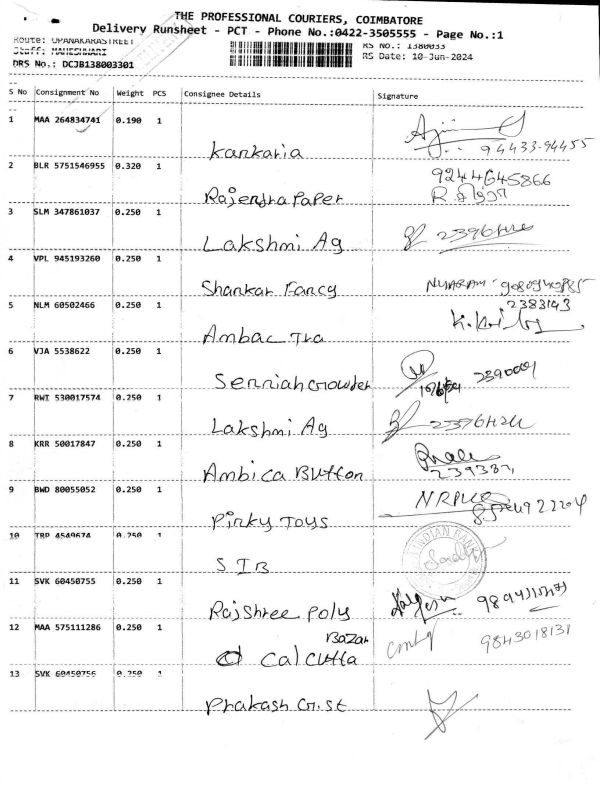 THE PROFESSIONAL COURIERS, COIMBATORE
Delivery Runsheet - PCT - Phone No.:0422-3505555 - Page No.:1
Route: OPANAKARASTREET
Staff: MAHESHWARI
RS No.: 1380033
DRS No.: DCJB138003301
RS Date: 10-Jun-2024
S No Consignment No Weight PCS Consignee Details Signature
1 MAA 264834741 0.190 1 Kankaria 94433-94455
2 BLR 5751546955 0.320 1 Rajendra Paper 9244645866
3 SLM 347861037 0.250 1 Lakshmi Ag
4 VPL 945193260 0.250 1 Shankar Fancy
5 NLM 60502466 0.250 1 Ambac Tra 2383143
6 VJA 5538622 0.250 1 Senniah Crowder
7 RWI 530017574 0.250 1 Lakshmi Ag
8 KRR 50017847 0.250 1 Ambica Button
9 BWD 80055052 0.250 1 Pinky Toys
10 TRP 4549674 0.250 1 S I B INDIAN BANK
11 SVK 60450755 0.250 1 Rajshree Poly
12 MAA 575111286 0.250 1 Calcutta Bazar 9843018131
13 SVK 60450756 0.250 1 Prakash G.St